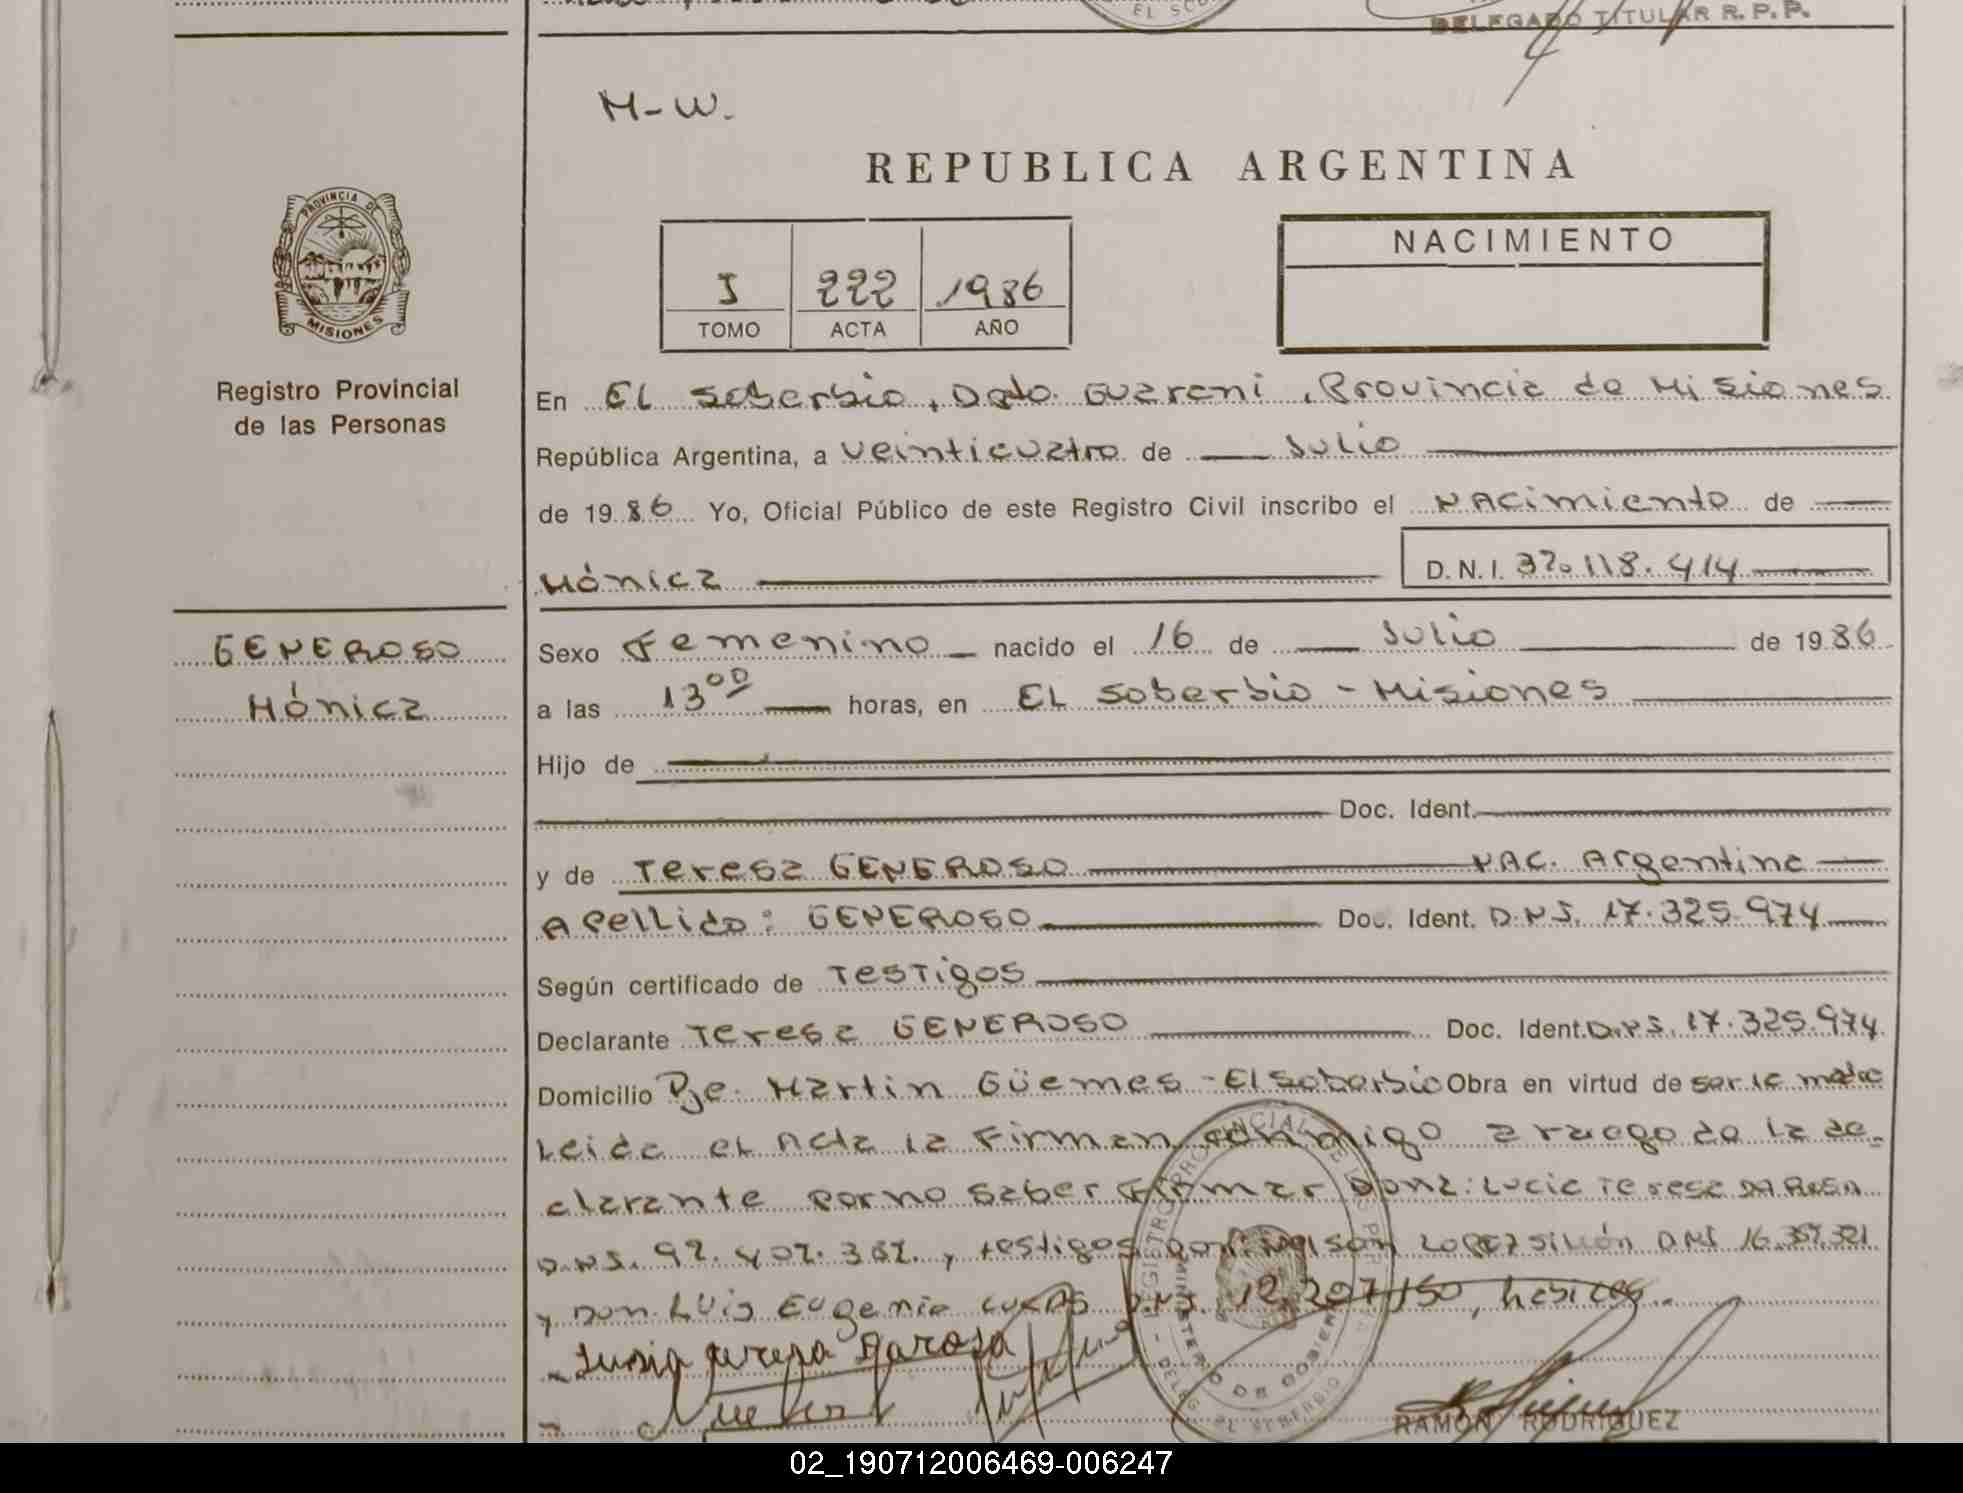 EL SOB
DELEGADO TITULAR R. P. P.
M-W.
REPUBLICA ARGENTINA
PROVINCIA DE
MISIONES
Registro Provincial
de las Personas
I 222 1986
TOMO ACTA AÑO
NACIMIENTO
En EL Soberbio, Dpto. Guarani, Provincia de Misiones
República Argentina, a veinticuatro de Julio
de 1986 Yo, Oficial Público de este Registro Civil inscribo el Nacimiento de
Mónica D.N.I. 32.118.414
GENEROSO
Mónica
Sexo Femenino nacido el 16 de Julio de 1986
a las 13 00 horas, en EL Soberbio - Misiones
Hijo de
Doc. Ident.
y de Teresa GENEROSO NAC. Argentina
Apellido: GENEROSO Doc. Ident. D.N.I. 17.325.974
Según certificado de Testigos
Declarante Teresa GENEROSO Doc. Ident. D.N.I. 17.325.974
Domicilio Pje. Martin Güemes - El Soberbio Obra en virtud de ser la madre
Leida el Acta la Firman conmigo a ruego de la de-
clarante por no saber Firmar Doña: Lucia Teresa DA ROSA
D.N.I. 92. y testigos don Nelson LOPEZ D.N.I. 16.357.321
y Don Luis Eugenio LUCAS D.N.I. 12.207.150, hábiles.
REGISTRO PROVINCIAL DE LAS PER
MINISTERIO DE GOBIER
DELEG. EL SOBERBIO
RAMON RODRIGUEZ
02_190712006469-006247